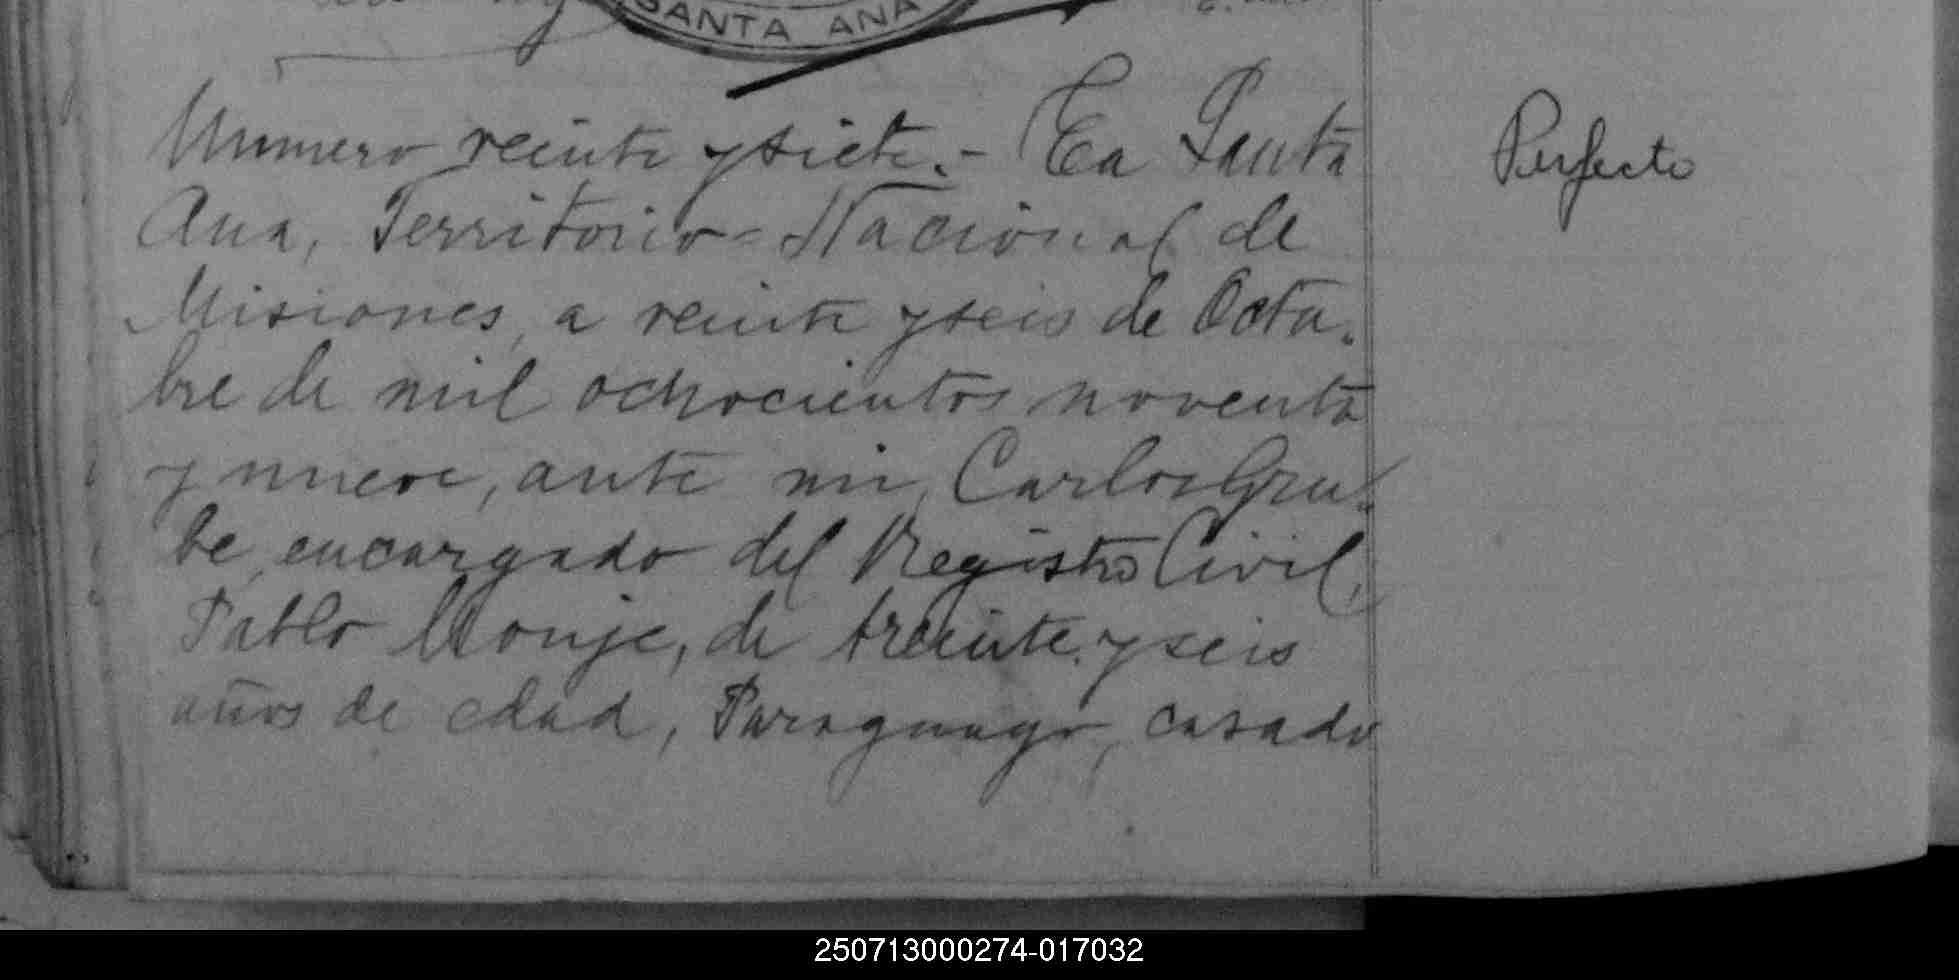 SANTA ANA
Numero veinte y siete.- En Santa
Ana, Territorio=Nacional de
Misiones, a veinte y seis de Octu-
bre de mil ochocientos noventa
y nueve, ante mi, Carlos Gru-
be, encargado del Registro Civil,
Pablo Monje, de treinte y seis
años de edad, Paraguayo, casado
Perfecto
250713000274-017032